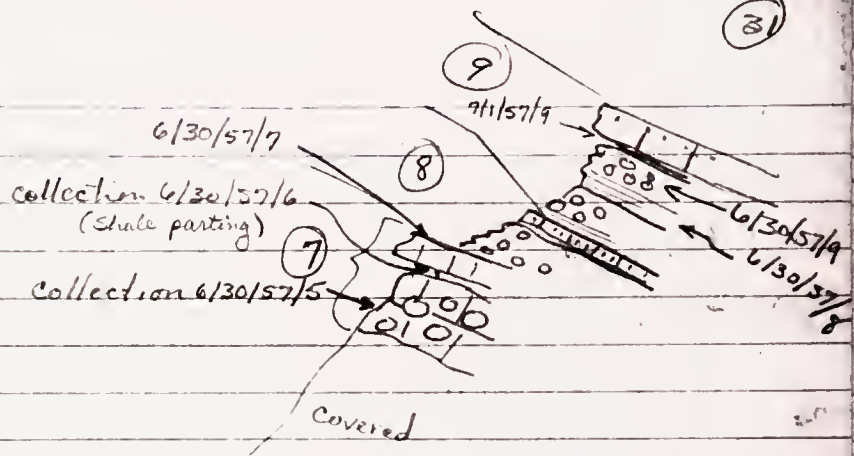 31
9
7/1/57/9
6/30/57/7
8
collection 6/30/57/6
(Shale parting)
7
collection 6/30/57/5
6/30/57/9
6/30/57/8
Covered